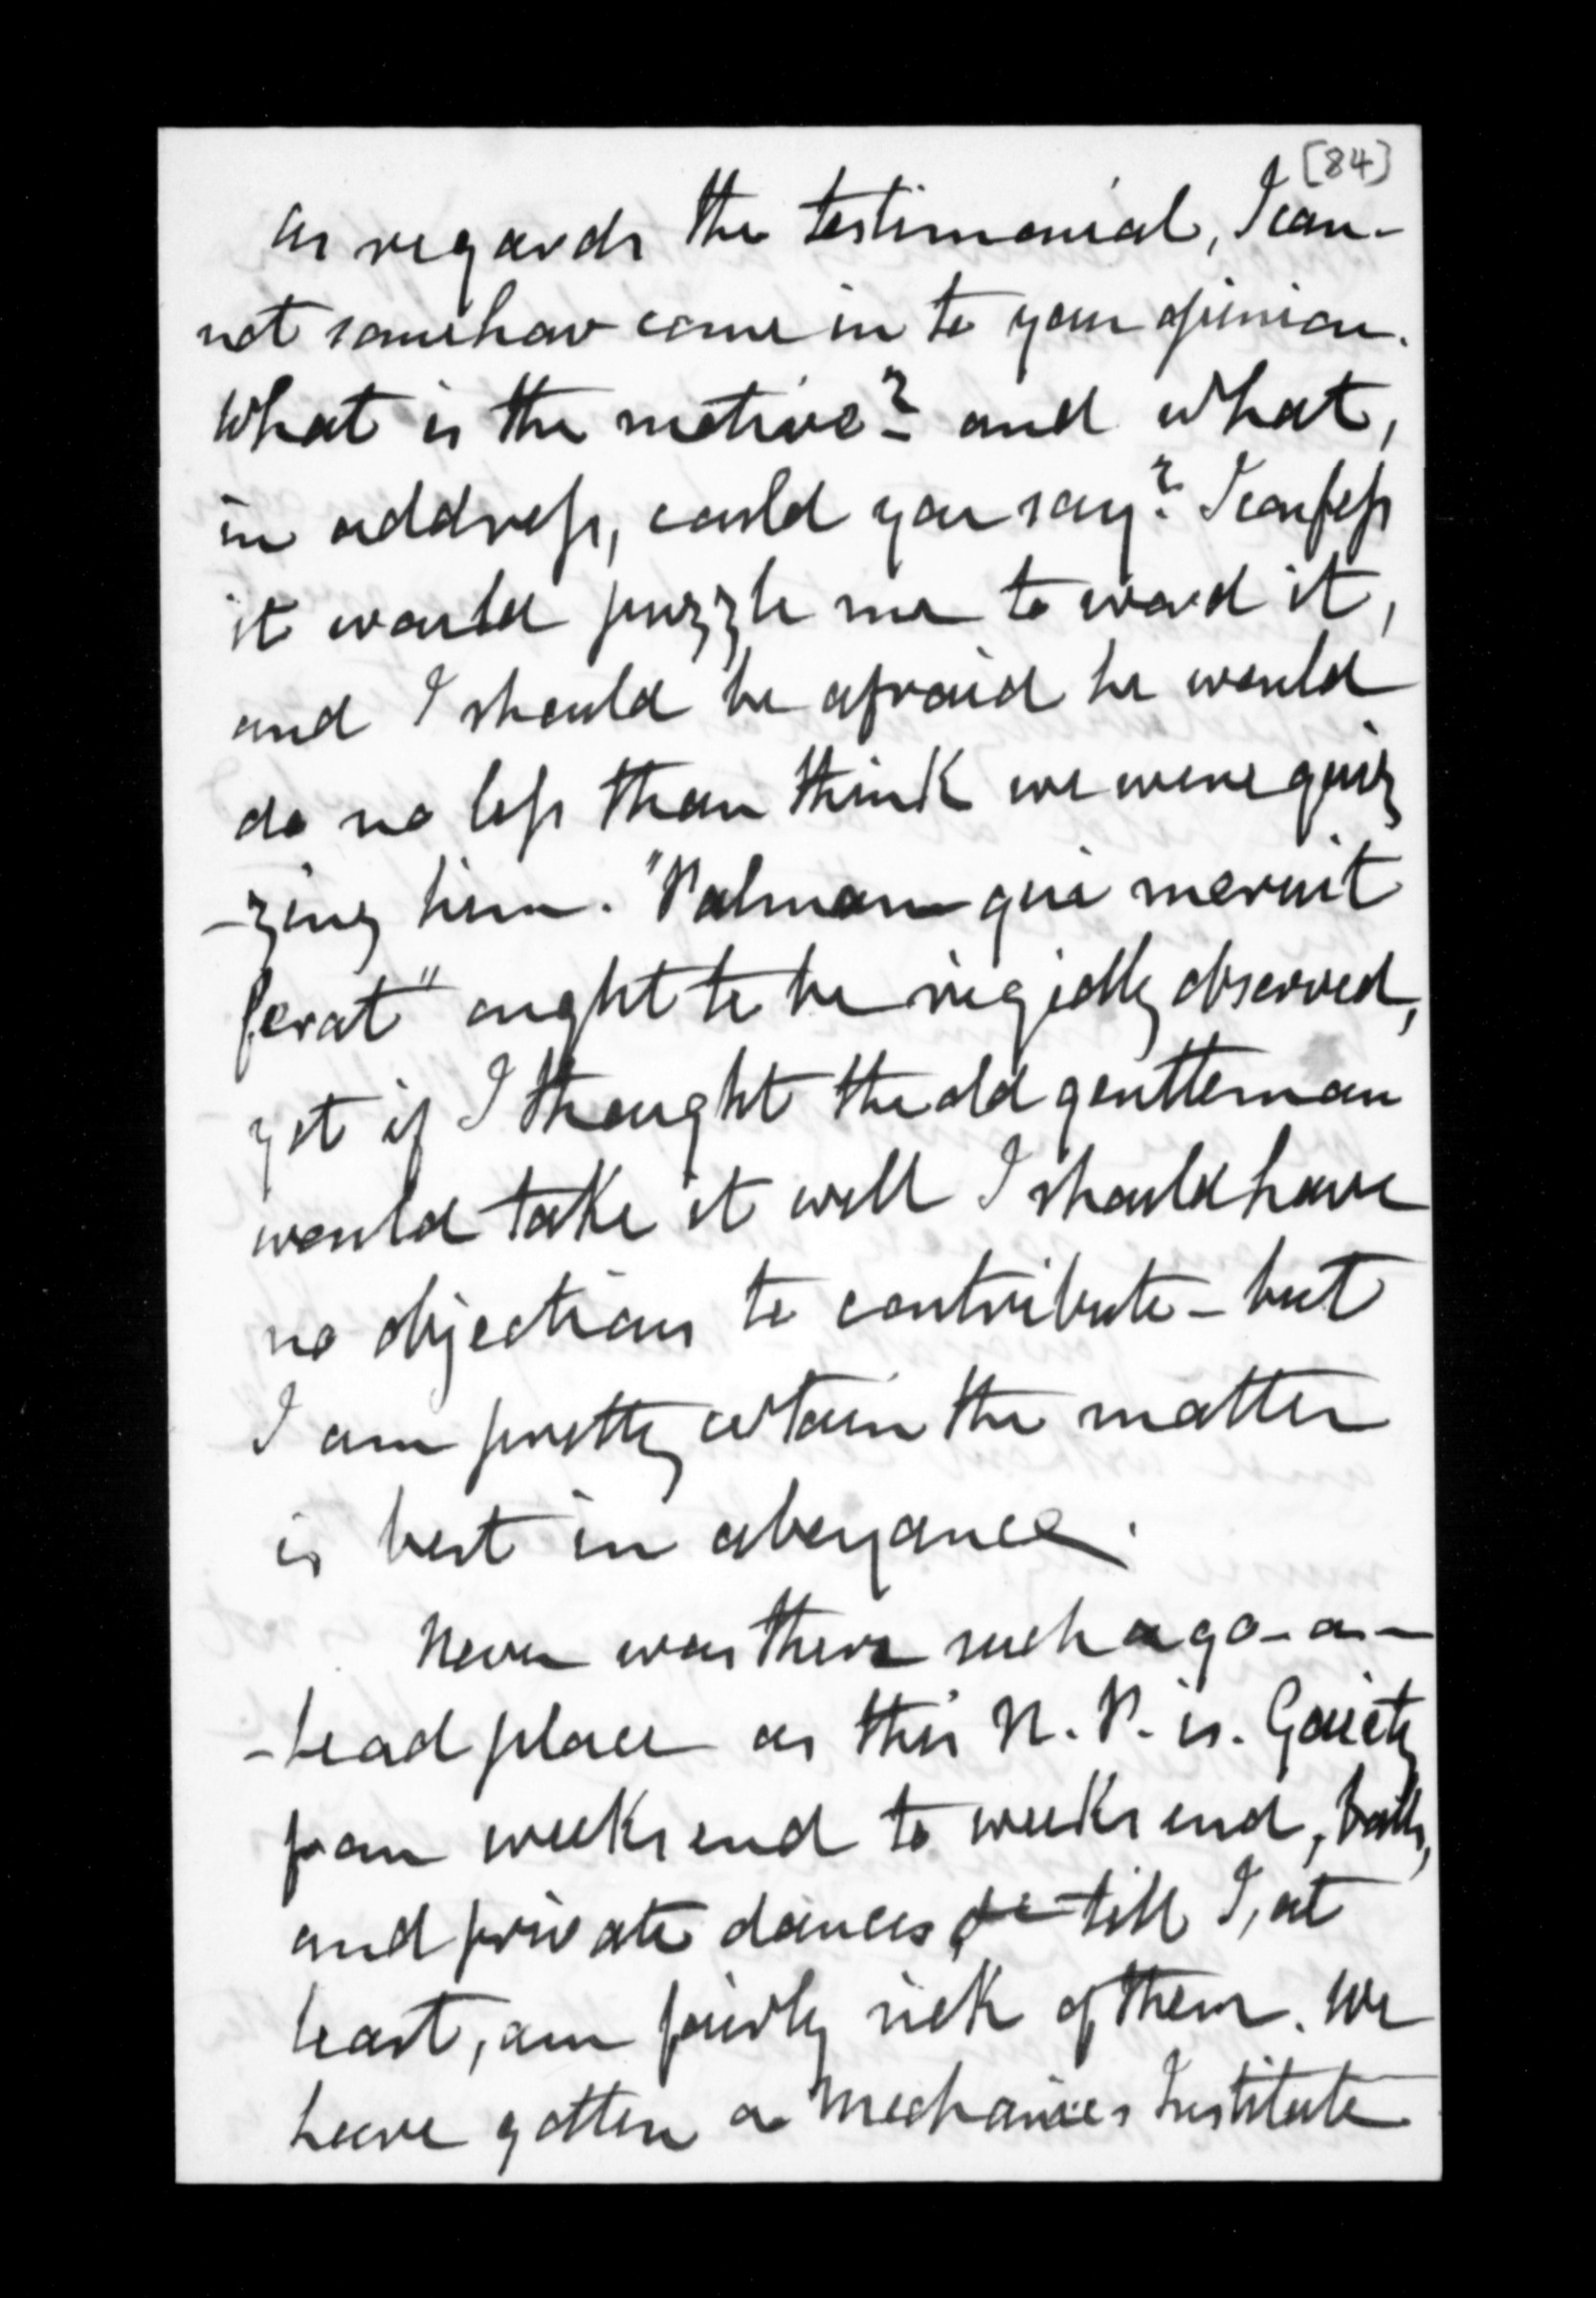 [84]
As regards the testimonial, I can-
not somehow come in to your opinion.
What is the motive? and what,
in address, could you say? I confess
it would puzzle me to word it,
and I should be afraid he would
do no less than think we were quiz
-zing him. "Palmam qui meruit
ferat" ought to be rigidly observed,
yet if I thought the old gentleman
would take it well I should have
no objections to contribute - but
I am pretty certain the matter
is best in abeyance.
Never was there such a go-a-
-head place as this N. P. is. Gaiety
from weeks end to weeks end, balls,
and private dances till I, at
least, am fairly sick of them. We
have gotten a Mechanics Institute